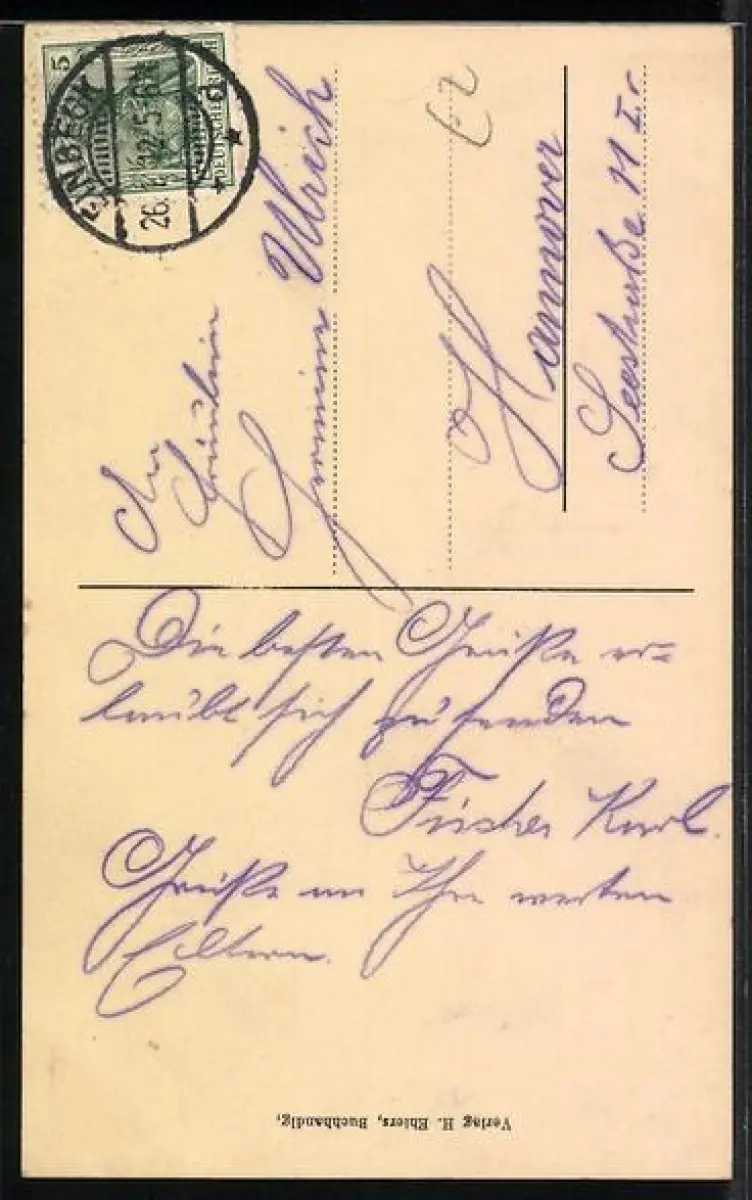 5
DEUTSCHES REICH
EINBECK
26. 12. 5-6N.
d
An
Fräulein
Hermine Ulrich
Hannover
Seestraße 11 I.
Die besten Grüße er=
laubt sich zu senden
Fischer Karl.
Grüße an Ihre werten
Eltern.
Verlag H. Ehlers, Buchhandlg,